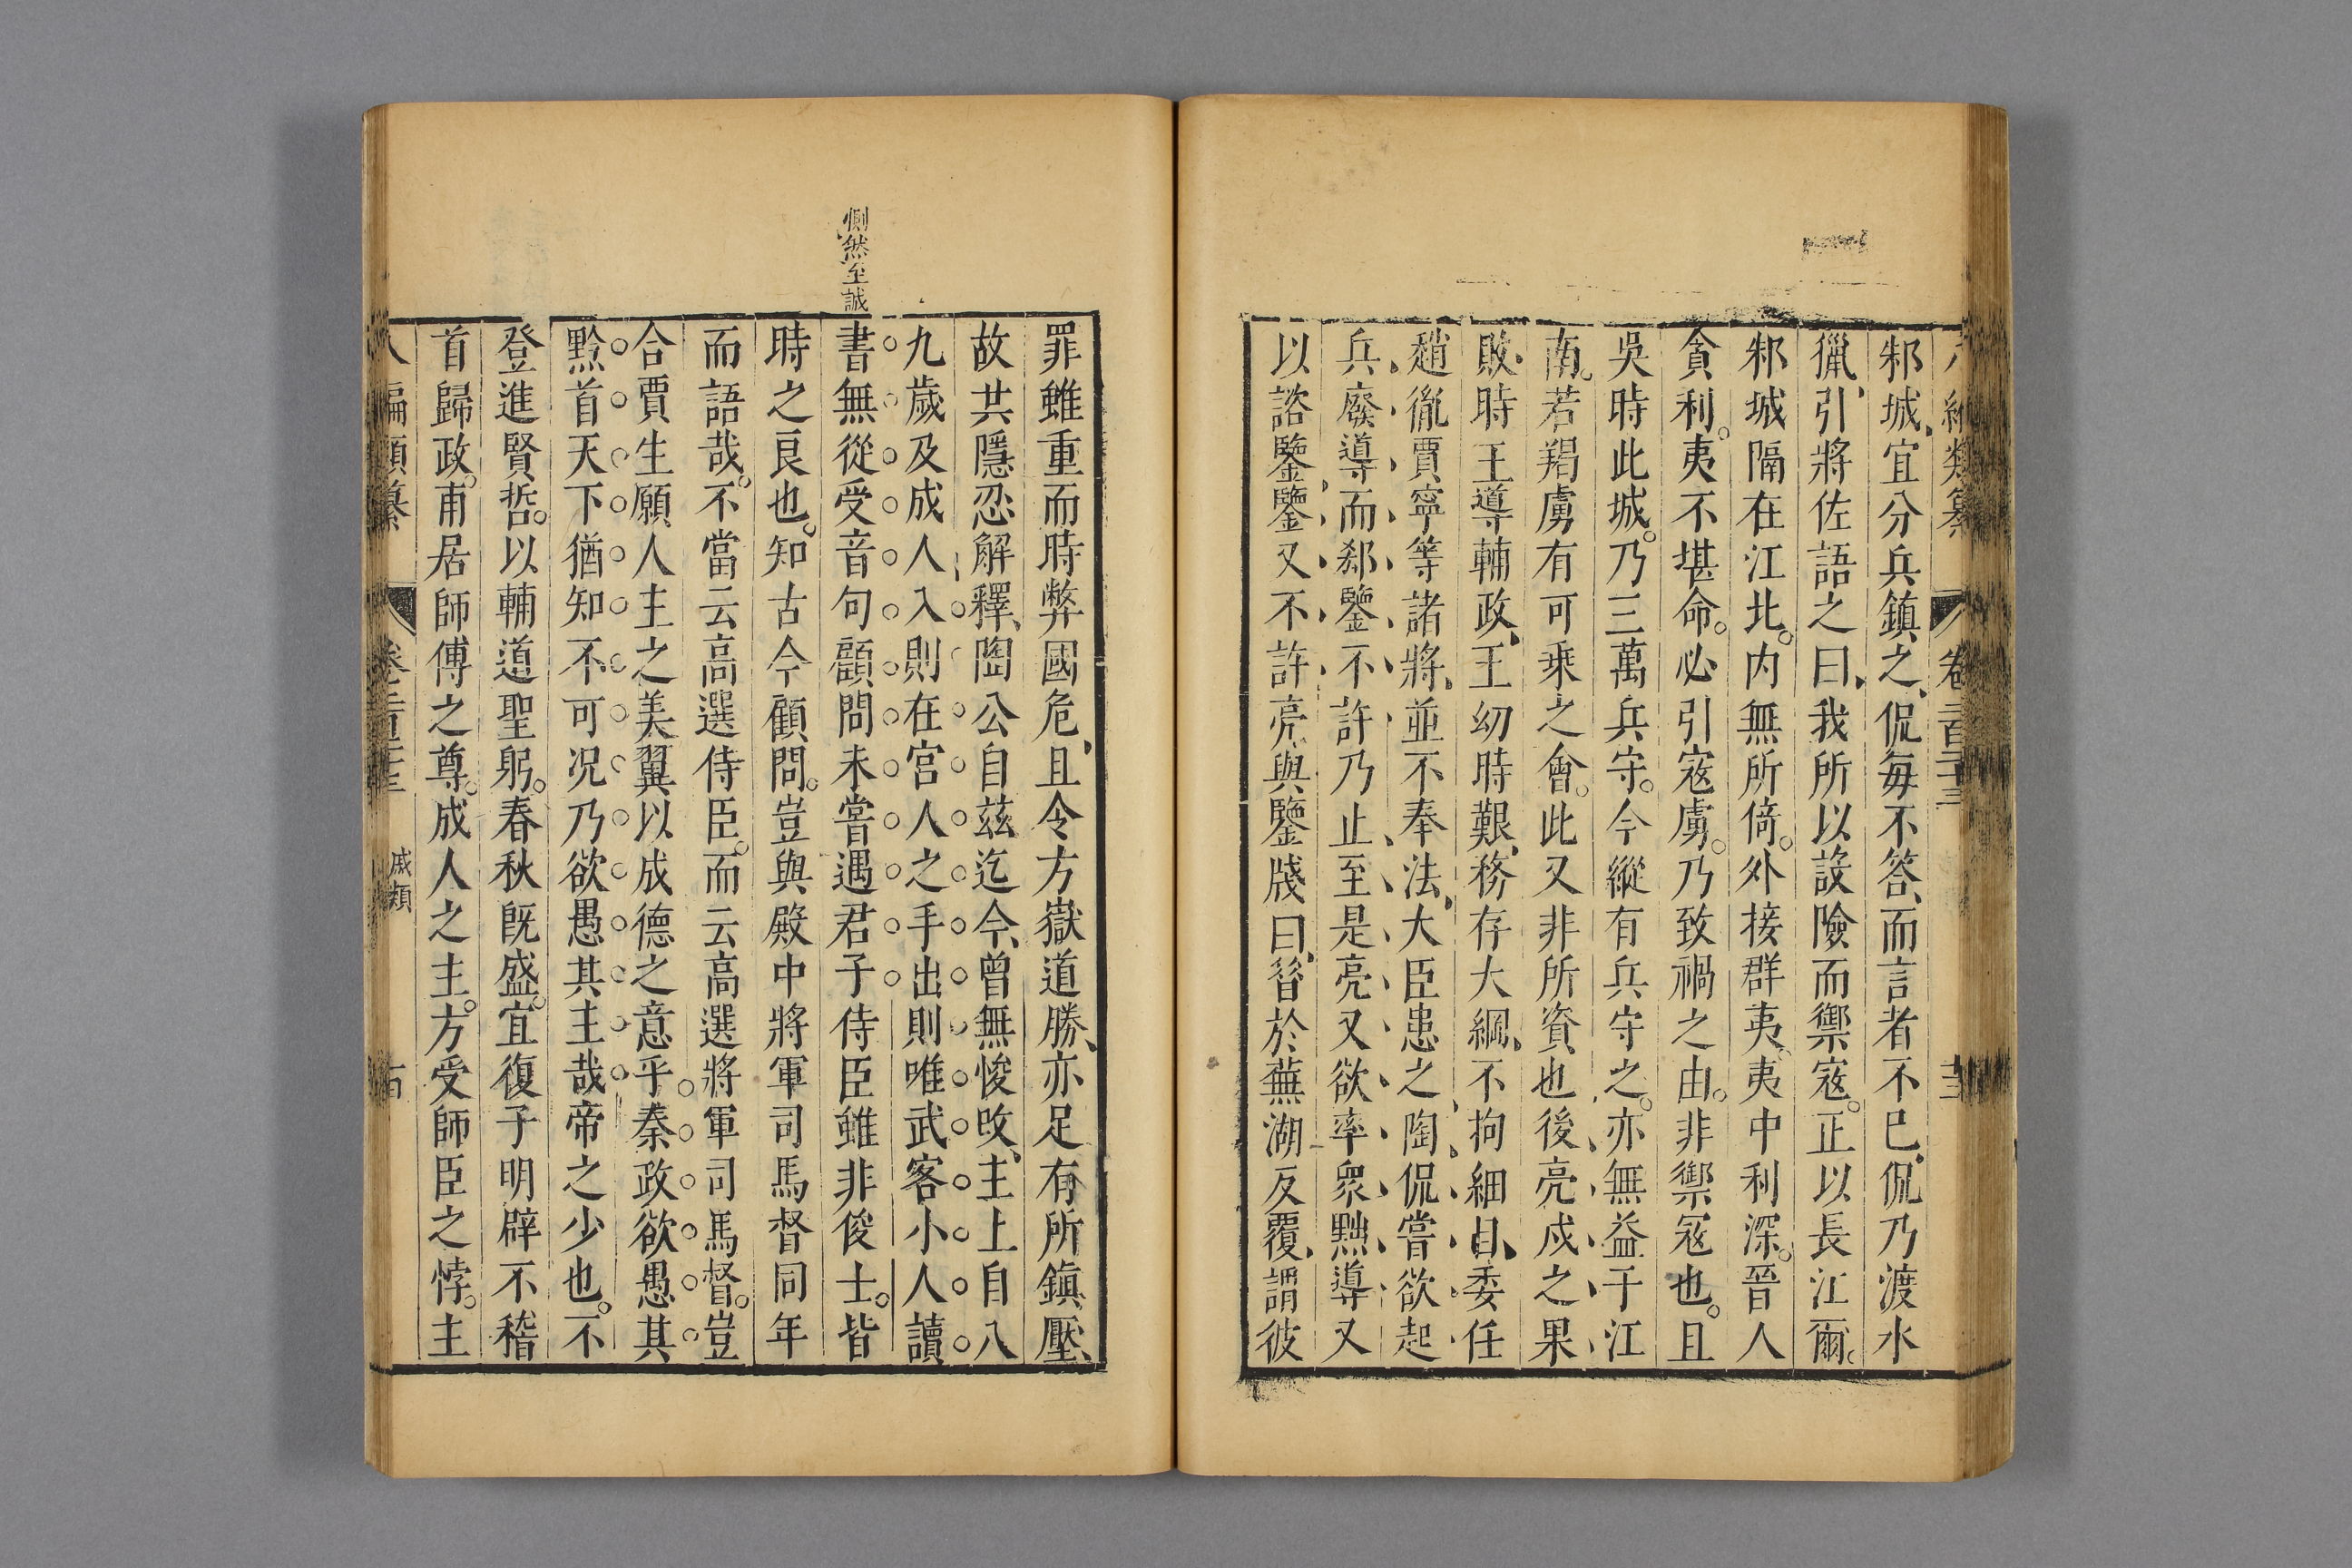 邾城宜分兵鎮之侃每不答而言者不已侃乃渡水
獵引將佐語之曰我所以設險而禦寇正以長江爾
邾城隔在江北内無所倚外接群夷夷中利深晉人
貪利夷不堪命必引寇虜乃致禍之由非禦冦也且
吳時此城乃三萬兵守今縱有兵守之亦無益于江
南若羯虜有可乘之會此又非所資也後亮戍之果
敗時王導輔政王幼時艱務存大綱不拘細目委任
趙胤賈寧等諸將並不奉法大臣患之陶侃嘗欲起
兵廢導而郄鑒不許乃止至是亮又欲率衆黜導又
以諮鑒鑒又不許亮與鑒牋曰昝於蕪湖反覆謂彼
罪雖重而時弊國危且令方嶽道勝亦足有所鎮壓
故共隱忍解釋陶公自茲迄今曾無悛攺主上自八
九歲及成人入則在宮人之手出則唯武客小人讀
書無從受音句顧問未嘗遇君子侍臣雖非俊士皆
時之良也知古今顧問豈與殿中將軍司馬督同年
而語哉不當云高選侍臣而云高選將軍司馬督豈
合賈生願人主之美翼以成德之意乎秦政欲愚其
黔首天下猶知不可况乃欲愚其主哉帝之少也不
登進賢哲以輔道聖躬春秋既盛宜復子明辟不稽
首歸政甫居師傅之尊成人之主方受師臣之悖主
惻然至誠
戚類